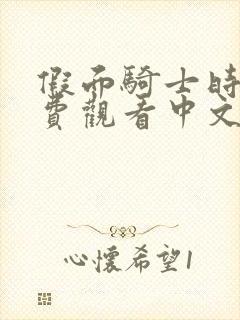 假面騎士時
費觀看中文
心懷希望1